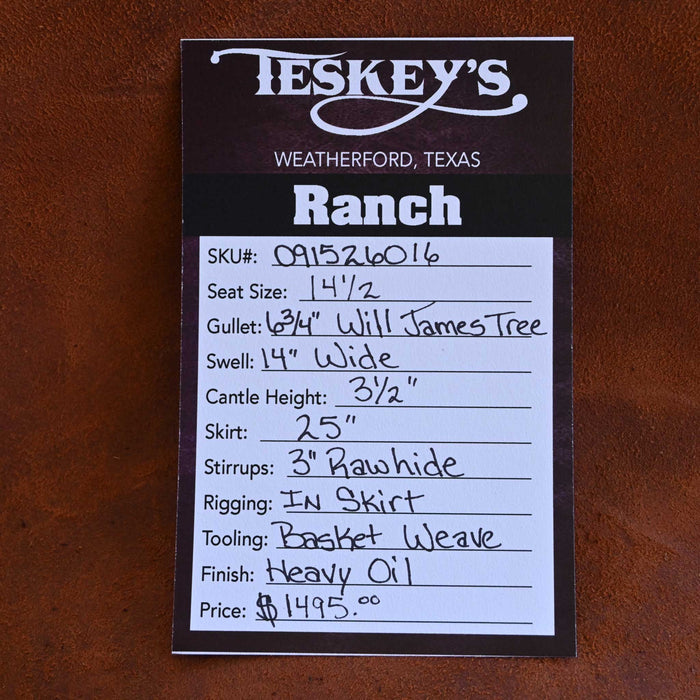 TESKEY'S
WEATHERFORD, TEXAS
Ranch
SKU#: 091526016
Seat Size: 14 1/2
Gullet: 6 3/4" Will James Tree
Swell: 14" Wide
Cantle Height: 3 1/2"
Skirt: 25"
Stirrups: 3" Rawhide
Rigging: IN Skirt
Tooling: Basket Weave
Finish: Heavy Oil
Price: $1495.00